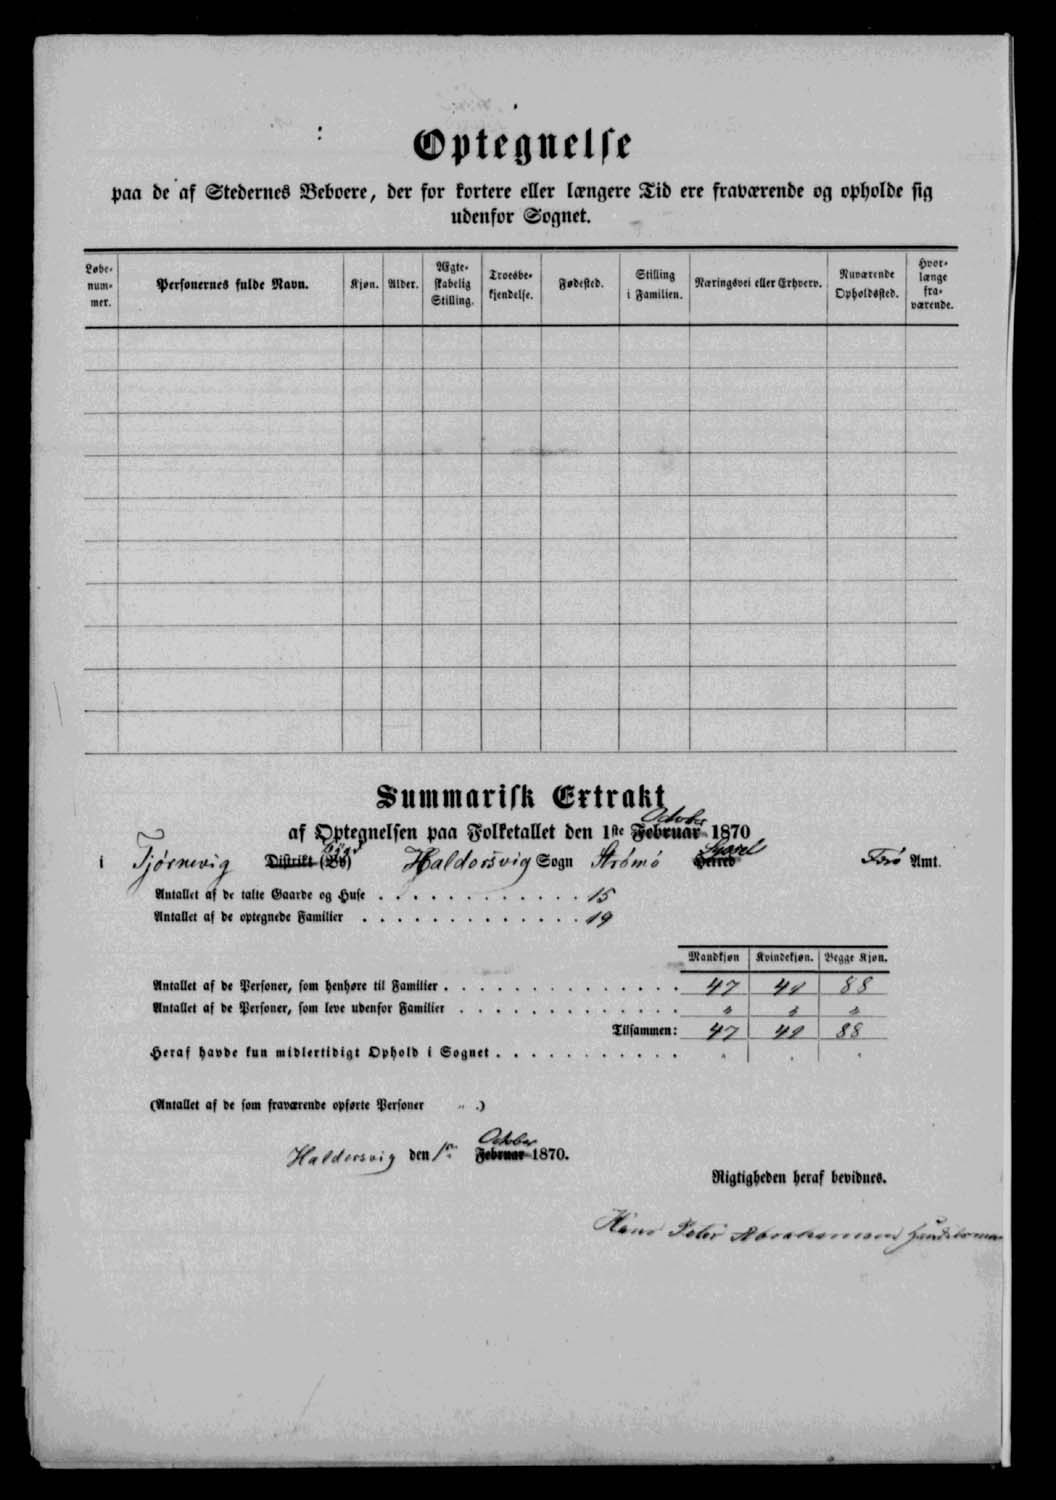 Optegnelse
paa de af Stedernes Beboere, der for kortere eller længere Tid ere fraværende og opholde sig
udenfor Sognet.
Løbe-nummer. Personernes fulde Navn. Kjøn. Alder. Ægteskabelig Stilling. Troesbekjendelse. Fødested. Stilling i Familien. Næringsvei eller Erhverv. Nuværende Opholdssted. Hvorlænge fraværende.
Summarisk Extrakt
October
af Optegnelsen paa Folketallet den 1ste Februar 1870
i Tjørnevig Distrikt (By) Haldersvig Sogn Strømø Syssel Herred Færø Amt.
Antallet af de talte Gaarde og Huse . . . . . . . . . . . . 15
Antallet af de optegnede Familier . . . . . . . . . . . . . 19
Mandkjøn Kvindekjøn. Begge Kjøn.
Antallet af de Personer, som henhøre til Familier . . . . . . . . . . . . . . 47 41 88
Antallet af de Personer, som leve udenfor Familier . . . . . . . . . . . . . " " "
Tilsammen: 47 41 88
Heraf havde kun midlertidigt Ophold i Sognet . . . . . . . . . . . " " "
(Antallet af de som fraværende opførte Personer " .)
October
Haldersvig den 1ste Februar 1870.
Rigtigheden heraf bevidnes.
Hans Peter Abrahamsen